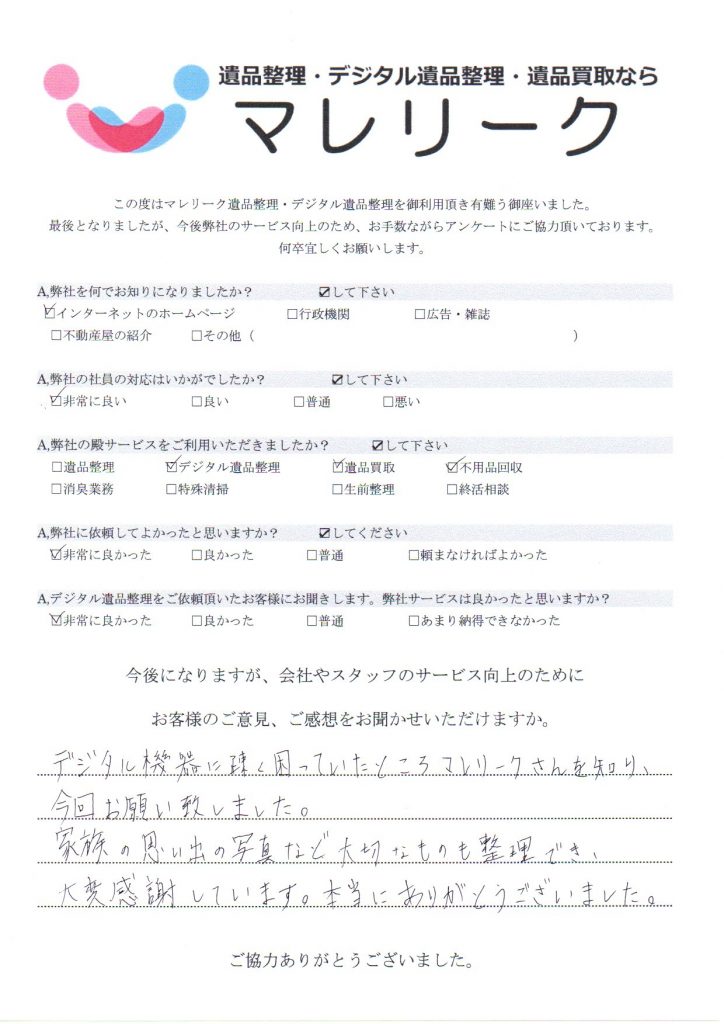 遺品整理・デジタル遺品整理・遺品買取なら
マレリーク
この度はマレリーク遺品整理・デジタル遺品整理を御利用頂き有難う御座いました。
最後となりましたが、今後弊社のサービス向上のため、お手数ながらアンケートにご協力頂いております。
何卒宜しくお願いします。
A,弊社を何でお知りになりましたか？ ☑して下さい
☑インターネットのホームページ □行政機関 □広告・雑誌
□不動産屋の紹介 □その他（ ）
A,弊社の社員の対応はいかがでしたか？ ☑して下さい
☑非常に良い □良い □普通 □悪い
A,弊社の殿サービスをご利用いただきましたか？ ☑して下さい
□遺品整理 ☑デジタル遺品整理 ☑遺品買取 ☑不用品回収
□消臭業務 □特殊清掃 □生前整理 □終活相談
A,弊社に依頼してよかったと思いますか？ ☑してください
☑非常に良かった □良かった □普通 □頼まなければよかった
A,デジタル遺品整理をご依頼頂いたお客様にお聞きします。弊社サービスは良かったと思いますか？
☑非常に良かった □良かった □普通 □あまり納得できなかった
今後になりますが、会社やスタッフのサービス向上のために
お客様のご意見、ご感想をお聞かせいただけますか。
デジタル機器に疎く困っていたところマレリークさんを知り、
今回お願い致しました。
家族の思い出の写真など大切なものも整理でき、
大変感謝しています。本当にありがとうございました。
ご協力ありがとうございました。